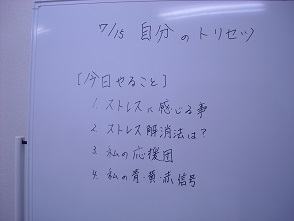 7/15 自分のトリセツ
[今日やること]
1. ストレスに感じる事
2. ストレス解消法は?
3. 私の応援団
4. 私の青・黄・赤信号